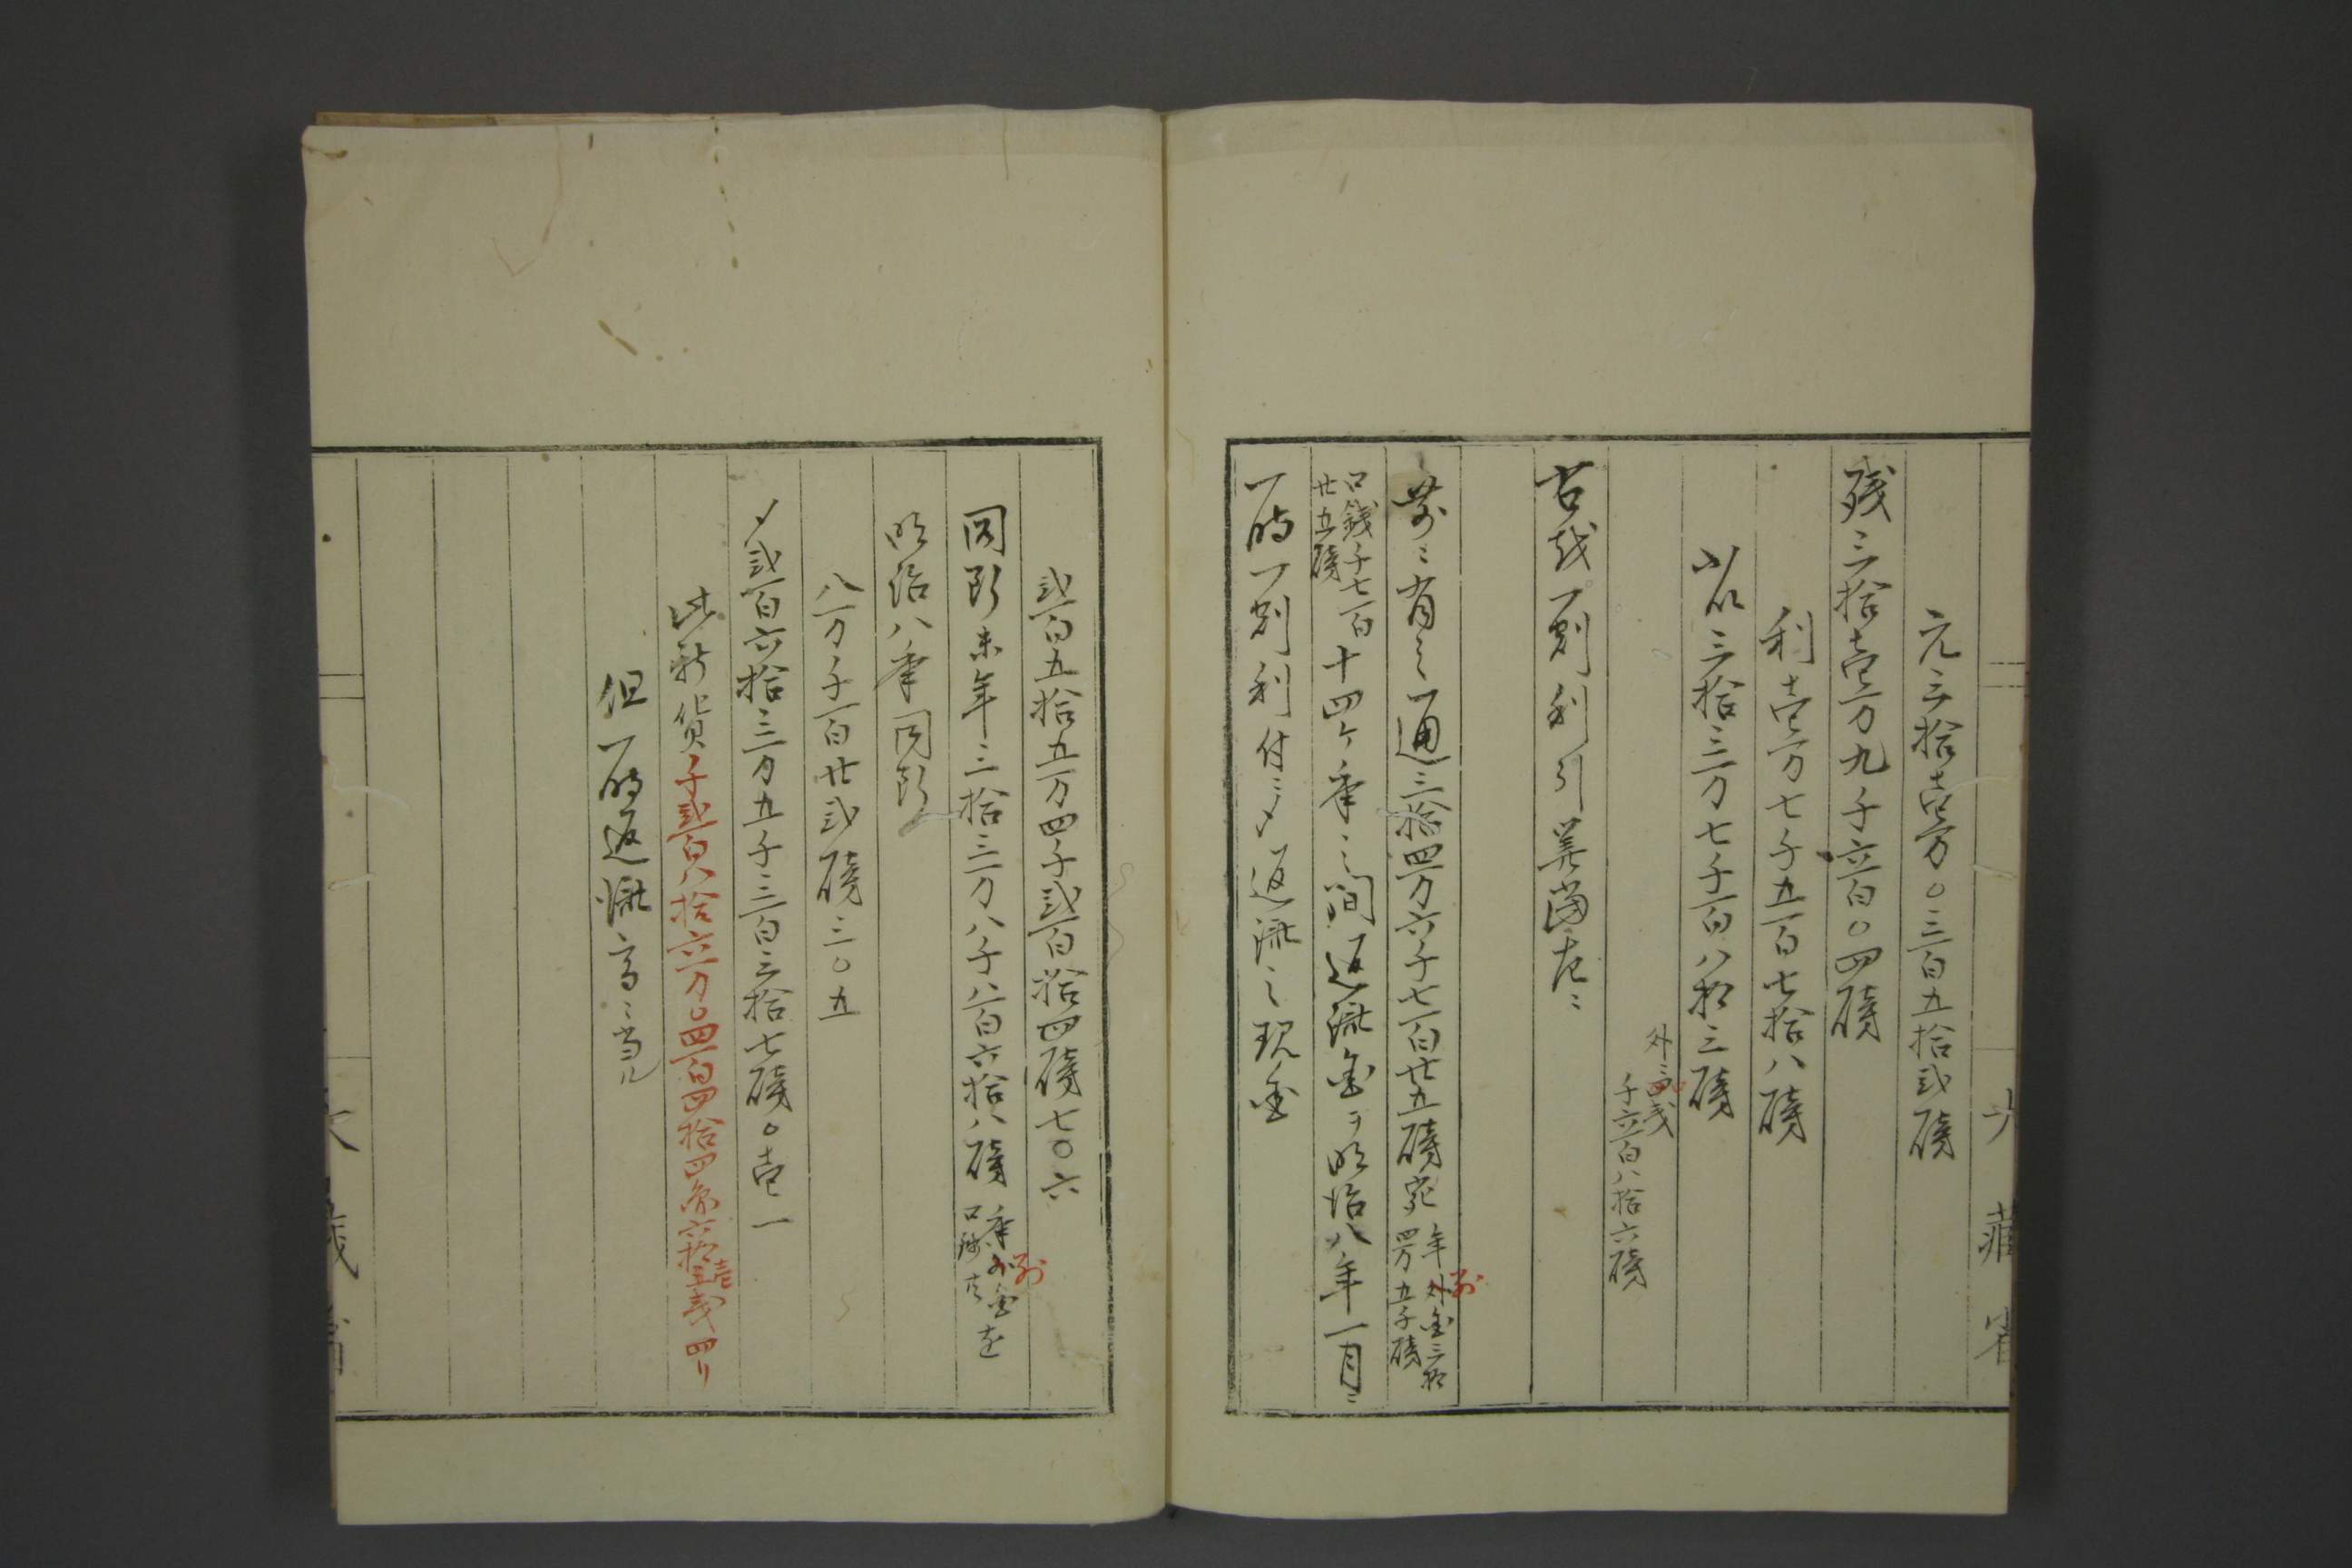 元三拾壱万〇三百五拾弐磅
残三拾壱万九千六百〇四磅
利壱万七千五百七拾八磅
〆三拾三万七千百八拾三磅
外ニ
千六百八拾六磅
右残一割利引算当左ニ
前ニ有之通三拾四万六千七百廿五磅宛
年別金三拾
四万五千磅
口銭千七百
廿五磅
十四ケ年之間返済金ヲ明治八年一月ニ
一時一割利付ニ〆返済之現金
弐百五拾五万四千弐百拾四磅七〇六
同断末年三拾三万八千八百六拾八磅
年別金を
口銭共
明治八年同断
八万千百廿弐磅三〇五
〆弐百六拾三万五千三百三拾七磅〇壱一
此新貨千弐百八拾六万〇四百四拾四
但一時返済高ニ当ル
大蔵省